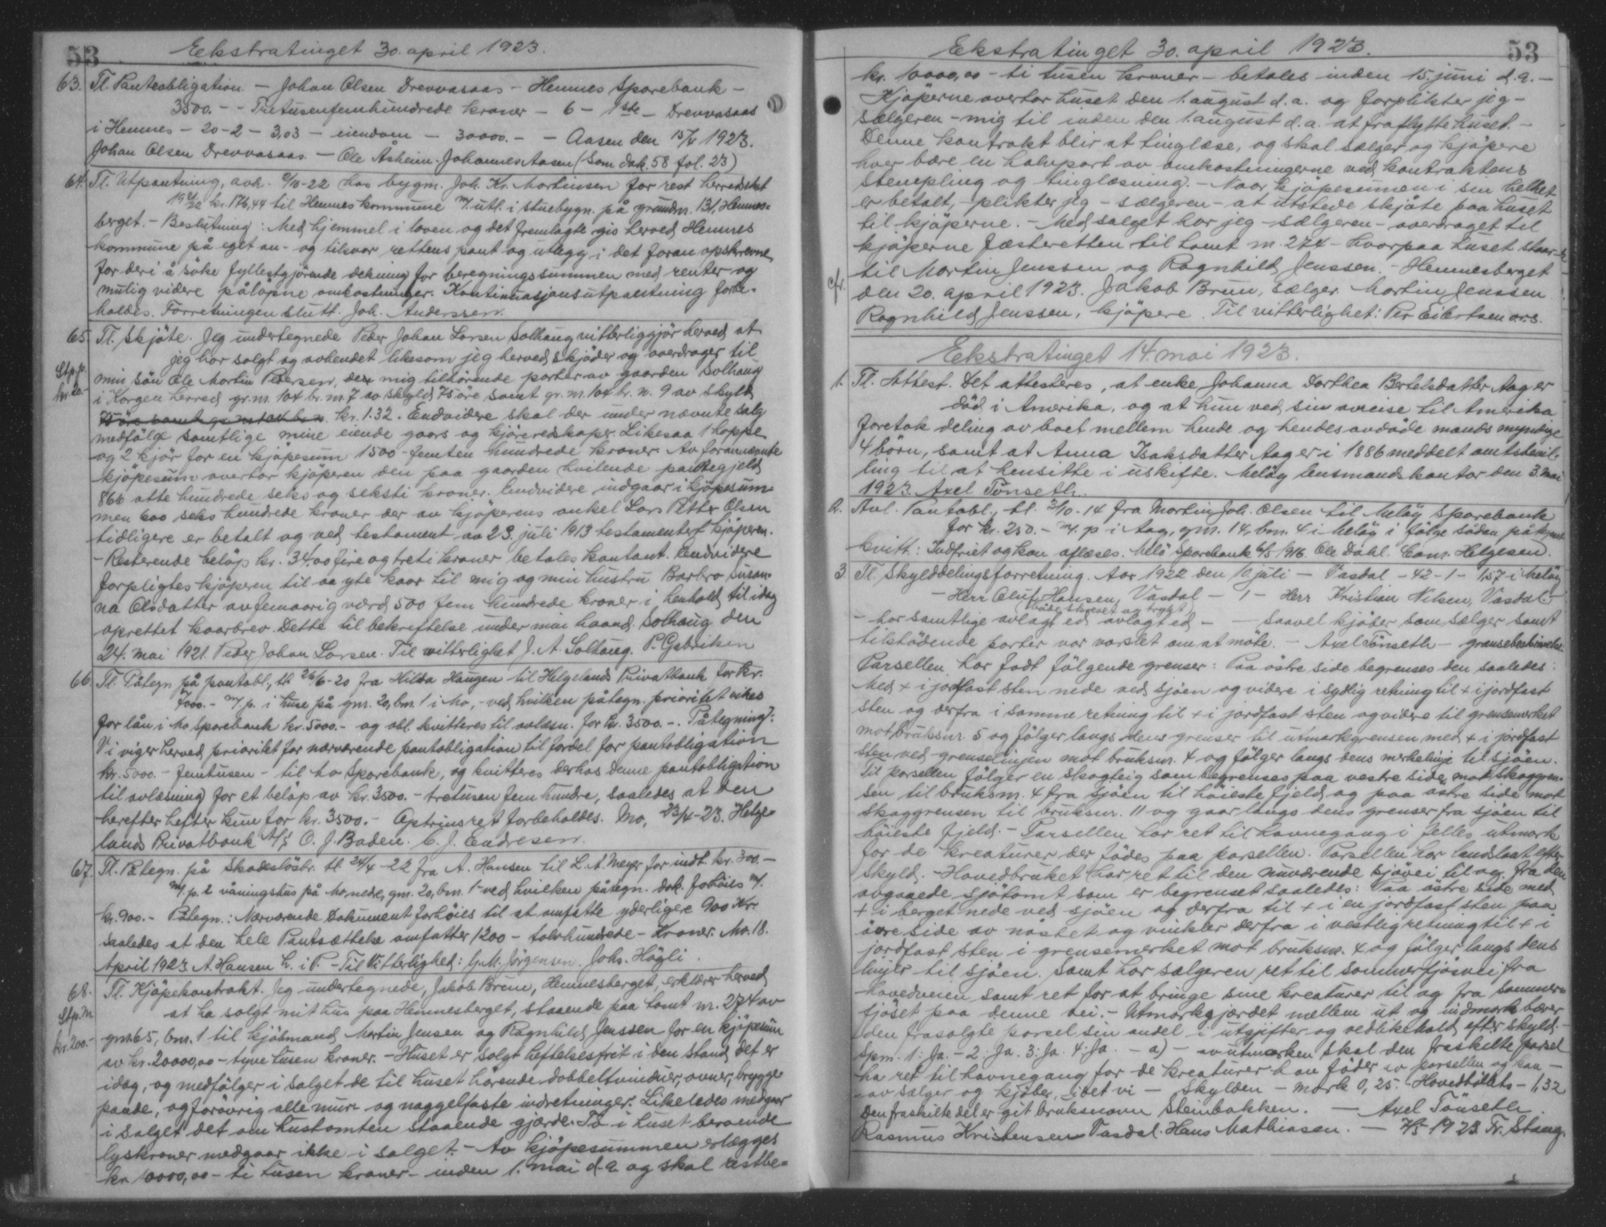 53
Ekstratinget 30. april 1923.
63. Tl. Panteobligation - Johan Olsen Drevvasaas - Hemnes Sparebank -
3500. - - Tretusenfemhundrede kroner - 6 - 1ste - Drevvasaas
i Hemnes - 20-2 - 3,03 - eiendom - 30000. - - Aasen den 15/4 1923.
Johan Olsen Drevvasaas - Ole Åsheim. Johannes Aasen (Som dok. 58 fol. 23)
64. Tl. Utpantning, avh. 9/10-22 hos bygm. Joh. Kr. Mortinsen for rest herredsskat
kr. 176,44 til Hemnes kommune m/ utl. i stuebygn. på grundn. 131, Hemnes-
berget. - Beslutning: Med hjemmel i loven og det fremlagte gis herved Hemnes
kommune på eget an- og tilsvar rettens pant og utlegg i det foran opskrevne
for deri å søke fyllestgjørende dekning for beregningssummen med renter og
mulig videre påløpne omkostninger. Kontinuasjonsutpantning forbe-
holdes. Forretningen slutt. Joh. Anderssen.
65. Tl. Skjøte. Jeg undertegnede Peder Johan Larsen Solhaug vitterliggjør herved at
jeg har solgt og avhendet liksom jeg herved skjøder og overdrager til
Stp. p.
min søn Ole Martin Pedersen, den mig tilhørende parter av gaarden Solhaug
i Korgen herred gr.n. 104 br.n. 7 av skyld 75 øre samt gr.n. 104 br.n. 9 av skyld
kr. 1.32. Endvidere skal der under nævnte salg
medfølge samtlige mine eiende gaars og kjøreredskaper. Likesaa 1 hoppe
og 2 kjør for en kjøpesum 1500 - femten hundrede kroner. Av forannævnte
kjøpesum overtar kjøperen den paa gaarden hvilende pantegjeld
866 otte hundrede seks og seksti kroner. Endvidere indgaar i kjøpesum-
men 600 seks hundrede kroner der av kjøperens onkel Lars Petter Olsen
tidligere er betalt og ved testament av 23. juli 1913 testamentert kjøperen.
- Resterende beløp kr. 34,00 fire og treti kroner betales kontant. Endvidere
forpligtes kjøperen til aa yte kaar til mig og min hustru Barbro Susan-
na Olsdatter av femaarig værd 500 fem hundrede kroner i henhold til idag
oprettet kaarbrev. Dette til bekreftelse under min haand. Solhaug den
24. mai 1921. Peder Johan Larsen. Til vitterlighet J. A. Solhaug. P. Gabrielsen
66. Tl. Påtegn. på pantobl., tl. 26/6-20 fra Hilda Haugen til Helgelands Privatbank for kr.
7000. - m/ p. i huse på gnr. 20, bnr. 1 i Mo, ved hvilken påtegn. prioritet vikes
for lån i Mo Sparebank kr. 5000. - og obl. kvitteres til avlæsn. for kr. 3500. -. Påtegning:
Vi viger herved prioritet for nærværende pantobligation til fordel for pantobligation
kr. 5000. - femtusen - til Mo Sparebank, og kvitteres derhos denne pantobligation
til avlæsning for et beløp av kr. 3500. - tretusen fem hundre, saaledes at den
herefter hefter kun for kr. 3500. - Optrinsret forbeholdes. Mo, 23/4-23. Helge-
lands Privatbank A/S O. J. Baden. C. J. Endresen.
67. Tl. Påtegn. på Skadesløsbr. tl. 24/4-22 fra A. Hansen til L. A. Meyer for indt. kr. 300. -
m/ p. i våningshus på Monede, gnr. 20, bnr. 1 - ved hvilken påtegn. dok. forhøies m/
kr. 900. - Påtegn.: Nærværende Dokument forhøies til at omfatte yderligere 900 Kr.
saaledes at den hele Pantsættelse omfatter 1200 - tolvhundrede - Kroner. Mo. 18.
April 1923. A. Hansen L. i P. - Til Vitterlighed: G. M. Jørgensen. Johs. Høgli.
68. Tl. Kjøpekontrakt. Jeg undertegnede, Jakob Bruun, Hemnesberget, erklærer herved
at ha solgt mit hus paa Hemnesberget, staaende paa tomt nr. 274 av
Stp. m.
kr. 200. -
gnr. 65, bnr. 1 til kjøbmand Martin Jensen og Ragnhild Jenssen for en kjøpesum
av kr. 20000,00 - tyve tusen kroner. - Huset er solgt heftelsesfrit i den stand det er
idag, og medfølger i salget de til huset hørende dobbeltvinduer, ovner, brygge-
pande, og forøvrig alle mur- og naggelfaste indretninger. Likeledes medgaar
i salget det om hustomten staaende gjerde. To i huset beroende
lyskroner medgaar ikke i salget. - Av kjøpesummen erlægges
kr. 10000,00 - ti tusen kroner - inden 1. mai d.a. og skal restbe-
Ekstratinget 30. april 1923.
53
kr. 10000,00 - ti tusen kroner - betales inden 15. juni d.a. -
Kjøperne overtar huset den 1 august d.a. og forplikter jeg -
sælgeren - mig til inden den 1 august d.a. at fraflytte huset. -
Denne kontrakt blir at tinglæse, og skal sælger og kjøpere
hver bære en halvpart av omkostningerne ved kontraktens
stempling og tinglæsning. - Naar kjøpesummen i sin helhet
er betalt, - plikter jeg - sælgeren - at utstede skjøte paa huset
til kjøperne. - Med salget har jeg - sælgeren - overdraget til
kjøperne fæsteretten til tomt nr. 274 - hvorpaa huset staar -
til Martin Jenssen og Ragnhild Jenssen. - Hemnesberget
den 20. april 1923. Jakob Bruun, sælger. Martin Jenssen
Ragnhild Jenssen, kjøpere. Til vitterlighet: Per Eilertsen o.r.s.
Ekstratinget 14. mai 1923.
1. Tl. Attest. Det attesteres, at enke Johanna Dorthea Bertelsdatter Aag er
død i Amerika, og at hun ved sin avreise til Amerika
foretok deling av boet mellem hende og hendes avdøde mands myndige
4 børn, samt at Anna Isaksdatter Aag er i 1886 meddelt amtsbevil-
ling til at hensitte i uskifte. Meløy lensmandskontor den 3. mai
1923. Axel Tønseth.
2. Avl. Pantobl., tl. 21/10-14 fra Martin Joh. Olsen til Meløy Sparebank
for kr. 250. - m/ p. i Aag, gnr. 14, bnr. 4 i Meløy i følge såden påtegnet
kvitt.: Indfriet og kan aflæses. Melø Sparebank 1916. Ole Dahl. Conr. Helgesen.
3 Tl. Skylddelingsforretning. Aar 1922 den 10 juli - Vasdal - 42-1 - 1,57 i Meløy
- Herr Oluf Hansen, Vasdal - 1 - Herr Kristian Nilsen, Vasdal -
- har samtlige avlagt ed - - saavel kjøper som sælger samt
tilstødende parter var varslet om at møte. - Axel Tønseth - grænsebeskrivelse.
Parsellen har fått følgende grenser: Paa østre side begrenses den saaledes:
Med + i jordfast sten nede ved sjøen og videre i sydlig retning til + i jordfast
sten og derfra i samme retning til + i jordfast sten og videre til grensemerket
mot bruksnr. 5 og følger langs dens grenser til utmarksgrensen med + i jordfast
sten ved grenselinjen mot bruksnr. 4 og følger langs dens merkelinje til sjøen.
Til parsellen følger en skogteig som begrenses paa vestre side mot skoggren-
sen til bruksnr. 4 fra sjøen til høieste fjeld, og paa østre side mot
skoggrensen til bruksnr. 11 og gaar langs dens grenser fra sjøen til
høieste fjeld. - Parsellen har ret til havnegang i felles utmark
for de kreaturer der fødes paa parsellen. Parsellen har landslaat efter
skyld. - Hovedbruket har ret til den nuværende sjøvei til og fra den
avgaaede sjøtomt som er begrenset saaledes: Paa østre side med
+ i berget nede ved sjøen og derfra til + i en jordfast sten paa
øvre side av nøstet og vinkler derfra i vestlig retning til + i
jordfast sten i grensemerket mot bruksnr. 4 og følger langs dens
linjer til sjøen. Samt har sælgeren ret til sommerfjøsvei fra
hovedveien samt ret for at bringe sine kreaturer til og fra sommer-
fjøset paa denne vei. - Utmarksgjærdet mellem ut og indmark bærer
den frasolgte parsel sin andel i utgifter og vedlikehold efter skyld. -
Spm. 1: Ja. - 2. Ja. 3: Ja. 4: Ja. - a) - av utmarken skal den fraskilte parsel
ha ret til havnegang for de kreaturer han føder paa parsellen og kan -
- av sælger og kjøber, idet vi - Skylden - mark 0,25. Hovedbølets - 1,32
Den fraskilte del er git bruksnavn Steinbakken. - Axel Tønseth.
Rasmus Kristensen Vasdal. Hans Mathiasen. - 1923 Tr. Stang.